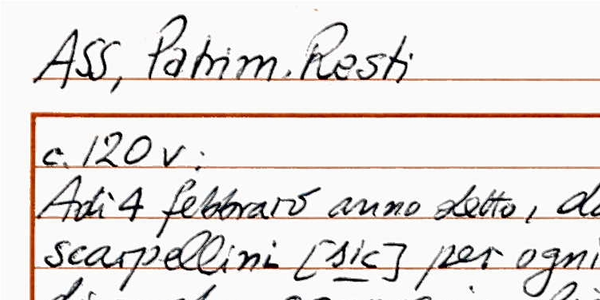 ASS, Patrim. Resti
c. 120 v:
Adi 4 febbraro anno detto,
scarpellini [sic] per ogni